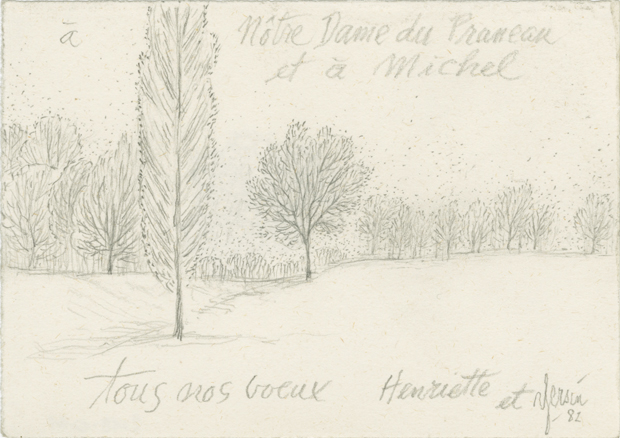 à Nôtre Dame du Pruneau
et à Michel
tous nos voeux Henriette et Yersin
82